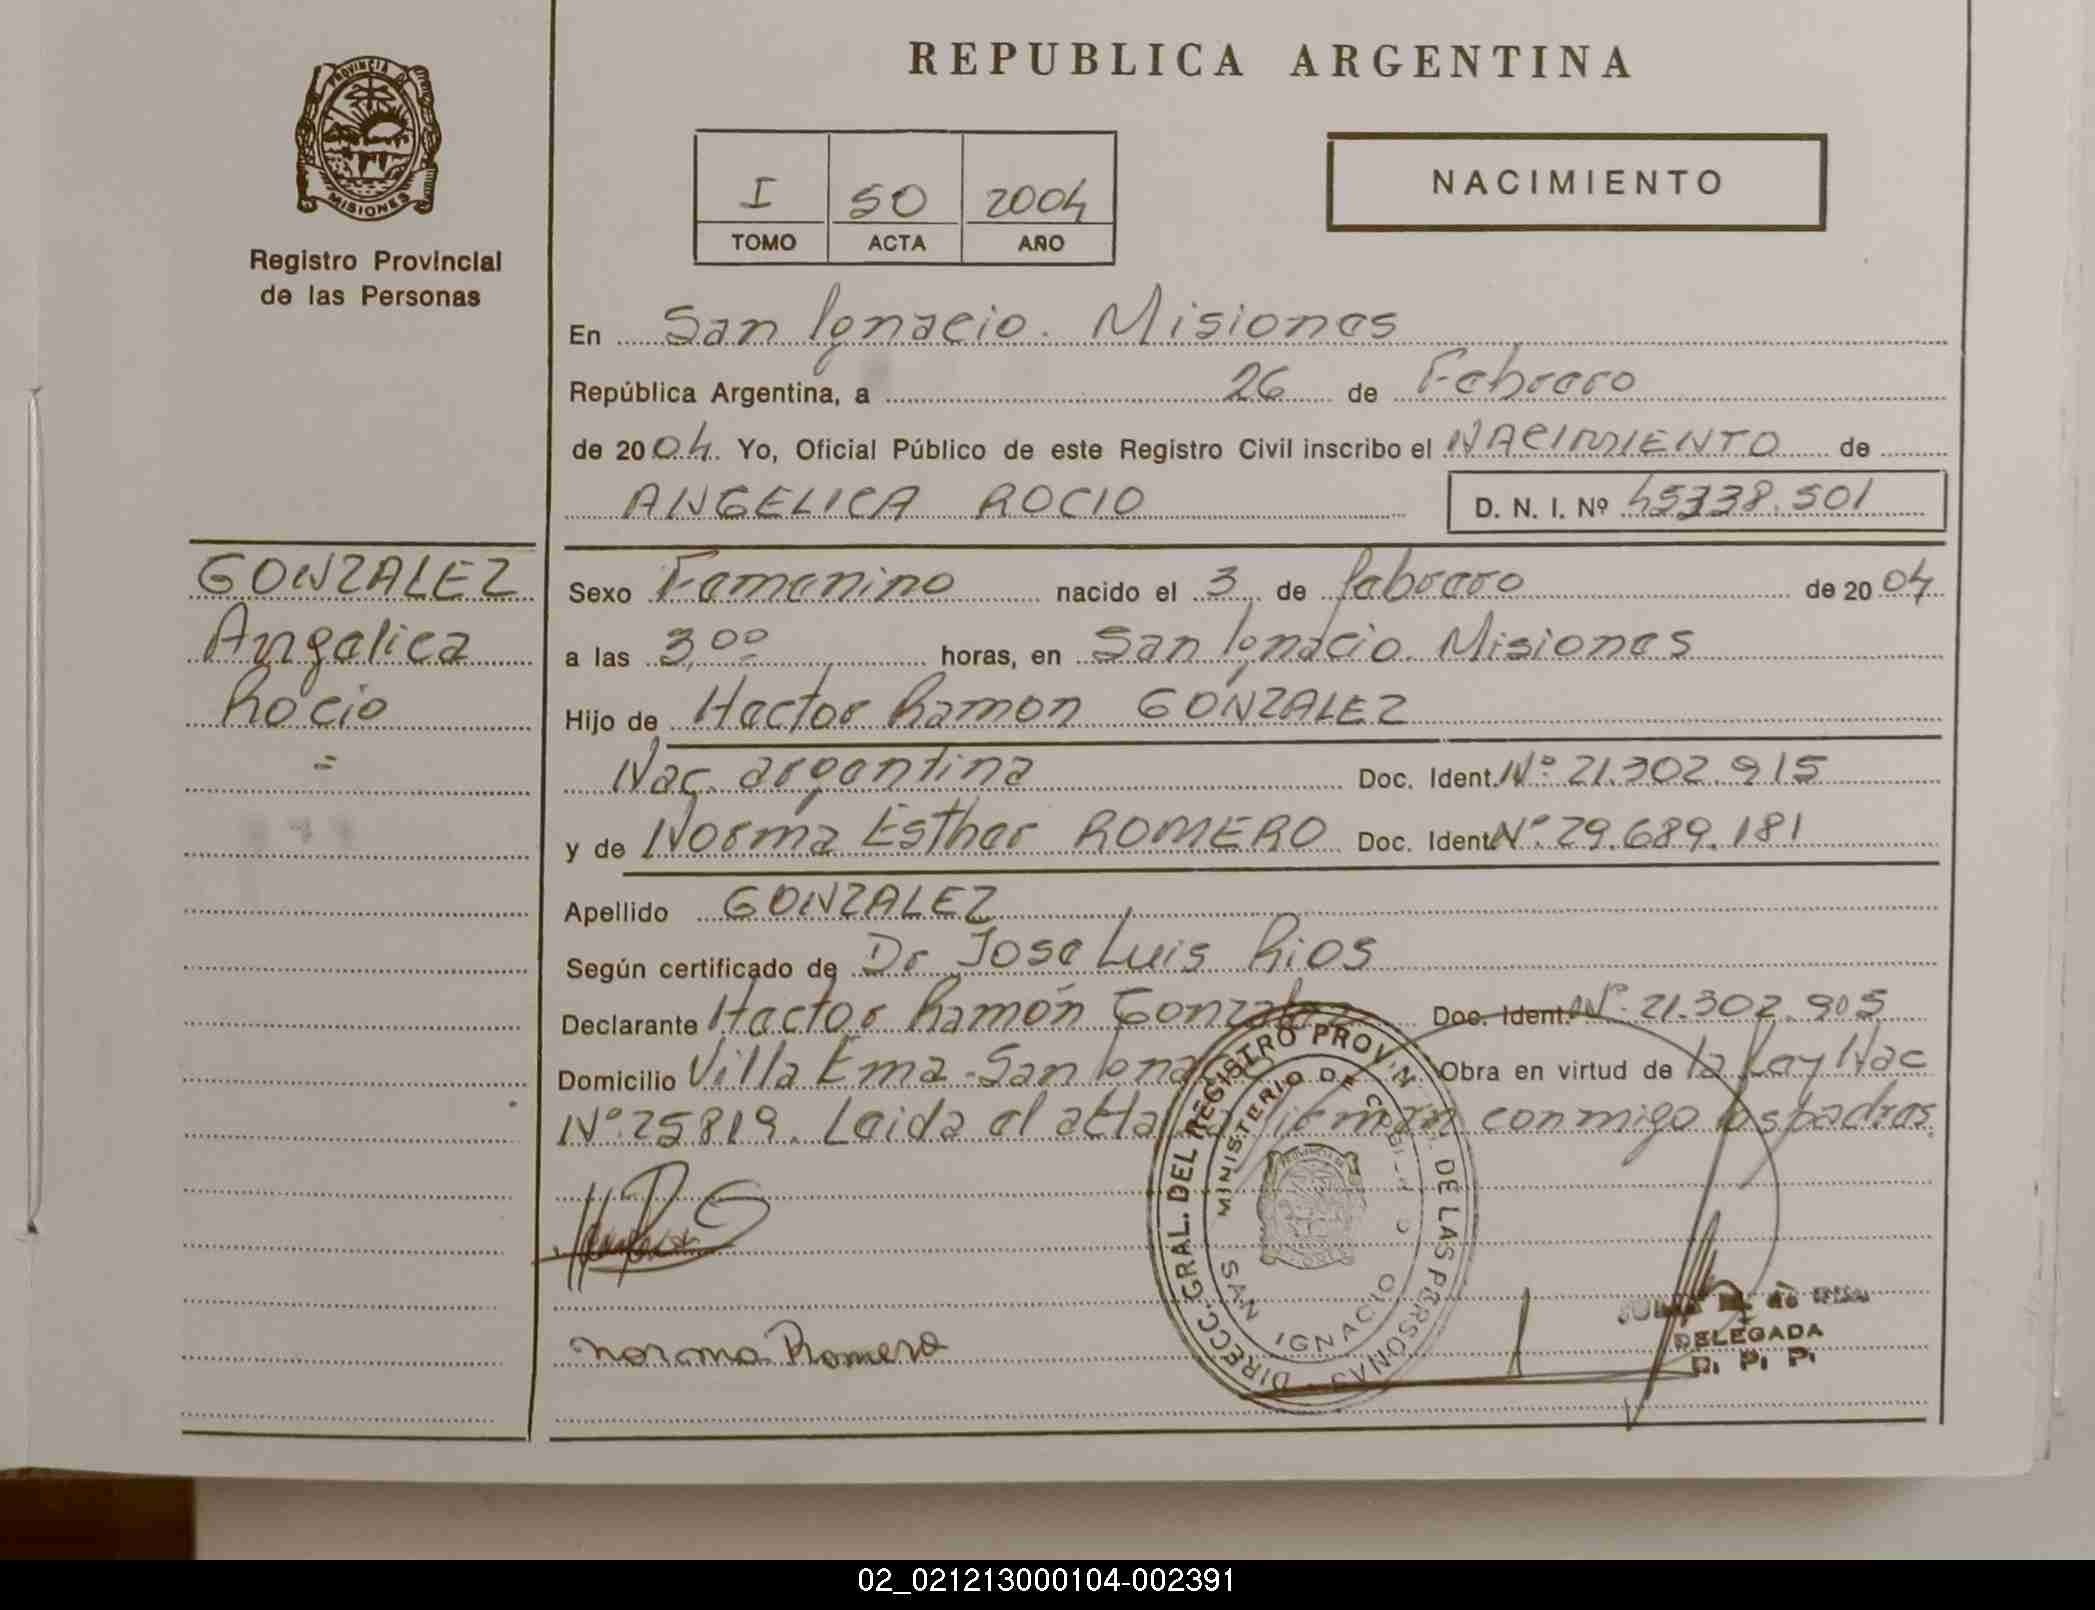 REPUBLICA ARGENTINA
PROVINCIA D
MISIONES
Registro Provincial
de las Personas
I 50 2004
TOMO ACTA AÑO
NACIMIENTO
En San Ignacio. Misiones
República Argentina, a 26 de Febrero
de 2004. Yo, Oficial Público de este Registro Civil inscribo el NACIMIENTO de
ANGELICA ROCIO D. N. I. Nº 45338.501
GONZALEZ
Angelica
Rocio
=
Sexo Femenino nacido el 3 de febrero de 2004
a las 3,00 horas, en San Ignacio. Misiones
Hijo de Hector Ramon GONZALEZ
Nac. argentina Doc. Ident. Nº: 21.302.915
y de Norma Esther ROMERO Doc. Ident. Nº: 29.689.181
Apellido GONZALEZ
Según certificado de Dr Jose Luis Rios
Declarante Hector Ramón Gonzalez Doc. Ident. Nº: 21.302.905
Domicilio Villa Ema - San Igna Obra en virtud de la Ley Nac
Nº: 25819. Leida el acta la firman conmigo los padres.
DIRECC. GRAL. DEL REGISTRO PROV. DE LAS PERSONAS
MINISTERIO DE
SAN IGNACIO
Norma Romero
DELEGADA
D. P. P.
02_021213000104-002391